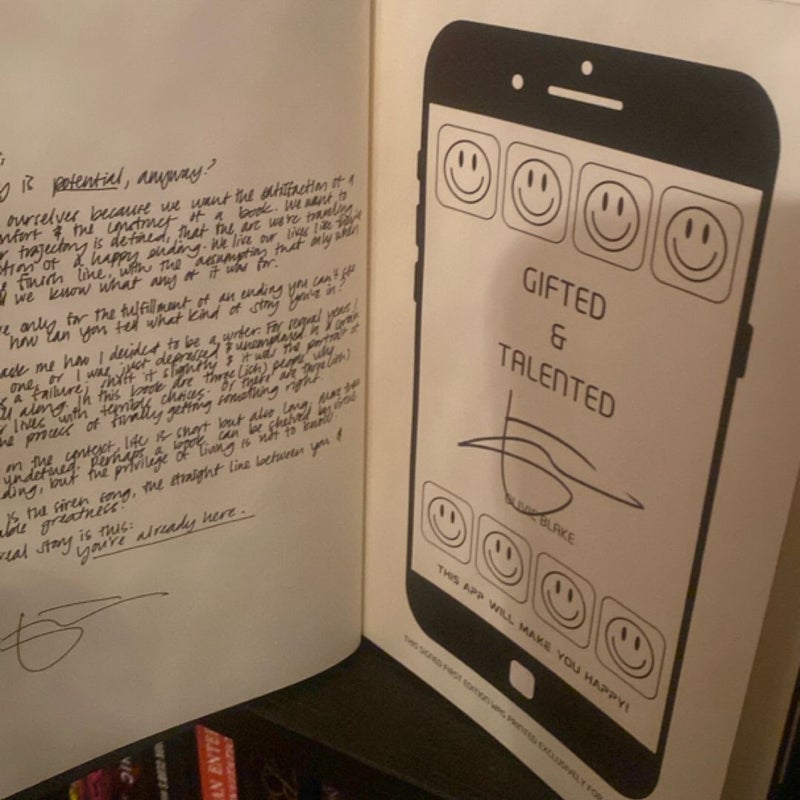 is potential, anyway?
ourselves because we want the satisfaction of a
& the construct of a book. We want to
trajectory is defined, that the arc we're traveling
of a happy ending. We live our lives like there's
finish line, with the assumption that only when
we know what any of it was for.
only for the fulfillment of an ending you can't see
how can you tell what kind of story you're in?
me how I decided to be a writer. For several years I
one, or I was just depressed & unemployed in a
a failure; shift it slightly & it was the portrait of
all along. In this book are three (ish) people
lives with terrible choices. Or there are three (ish)
process of finally getting something right.
on the context. Life is short but also long,
undefined. Perhaps a book can be shelved by
but the privilege of living is not to know.
is the siren song, the straight line between you &
greatness.
real story is this:
you're already here.
GIFTED
&
TALENTED
OLIVIE BLAKE
THIS APP WILL MAKE YOU HAPPY!
THIS SIGNED FIRST EDITION WAS PRINTED EXCLUSIVELY FOR